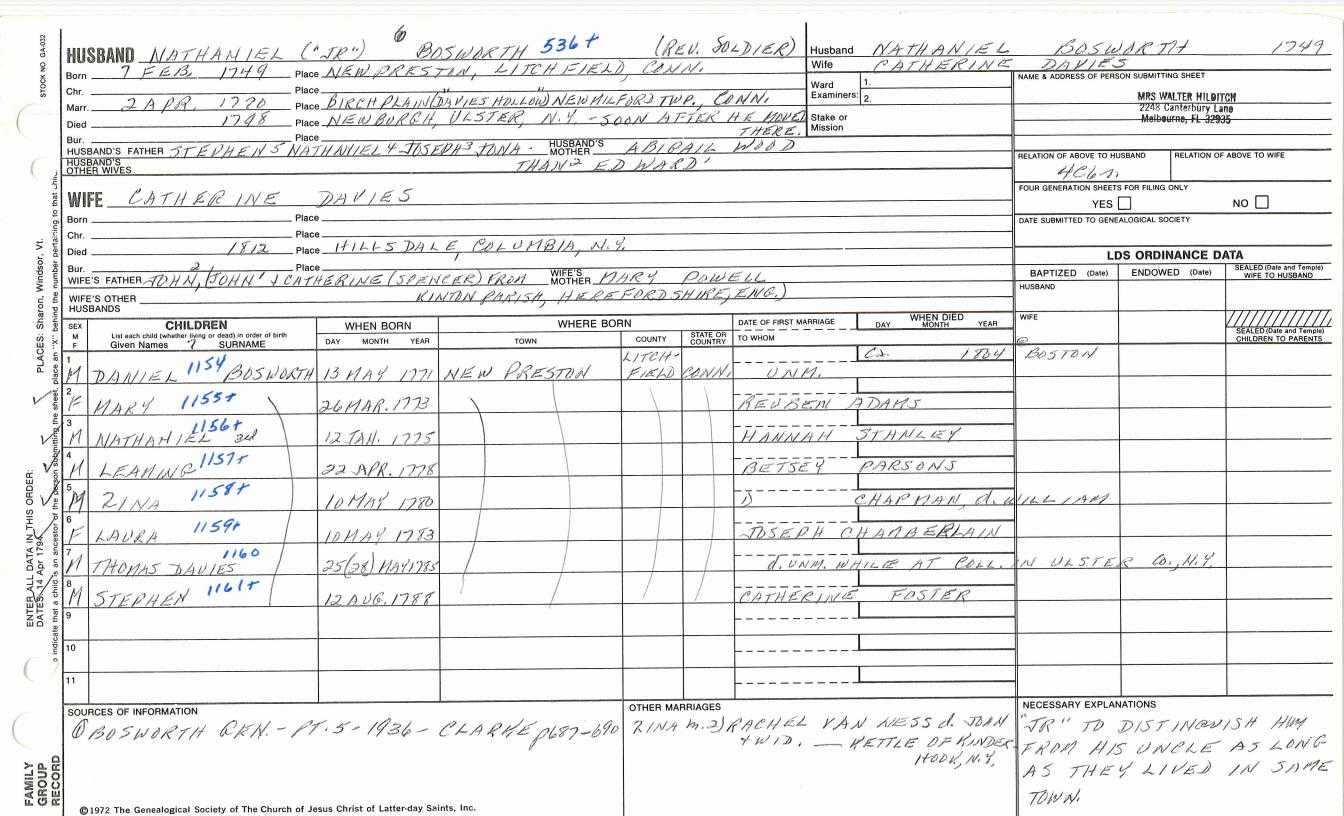 STOCK NO. GA-032
PLACES: Sharon, Windsor, Vt.
ENTER ALL DATA IN THIS ORDER:
DATES: 14 Apr 1794
to indicate that a child is an ancestor of the person submitting the sheet, place an "X" behind the number pertaining to that
FAMILY GROUP RECORD
6
HUSBAND NATHANIEL ("JR") BOSWORTH 536+ (REV. SOLDIER)
Born 7 FEB. 1749 Place NEW PRESTIN, LITCHFIELD, CONN.
Chr. Place
Marr. 2 APR. 1770 Place BIRCH PLAIN ("DAVIES HOLLOW") NEW MILFORD TWP., CONN.
Died 1798 Place NEWBURGH, ULSTER, N.Y. - SOON AFTER HE MOVED
Bur. Place THERE.
HUSBAND'S FATHER STEPHEN 5 NATHANIEL 4 JOSEPH 3 JONA- HUSBAND'S MOTHER ABIGAIL WOOD
HUSBAND'S OTHER WIVES THAN 2 EDWARD 1
WIFE CATHERINE DAVIES
Born Place
Chr. Place
Died 1812 Place HILLSDALE, COLUMBIA, N.Y.
Bur. Place
WIFE'S FATHER JOHN, 2 (JOHN 1 & CATHERINE (SPENCER) FROM WIFE'S MOTHER MARY POWELL
WIFE'S OTHER HUSBANDS KINTON PARISH, HEREFORDSHIRE, ENG.)
Husband NATHANIEL BOSWORTH 1749
Wife CATHERINE DAVIES
Ward Examiners: 1.
2.
Stake or Mission
NAME & ADDRESS OF PERSON SUBMITTING SHEET
MRS WALTER HILDITCH
2248 Canterbury Lane
Melbourne, FL 32935
RELATION OF ABOVE TO HUSBAND RELATION OF ABOVE TO WIFE
4C6r.
FOUR GENERATION SHEETS FOR FILING ONLY
YES NO
DATE SUBMITTED TO GENEALOGICAL SOCIETY
LDS ORDINANCE DATA
BAPTIZED (Date) ENDOWED (Date) SEALED (Date and Temple) WIFE TO HUSBAND
HUSBAND
WIFE
SEALED (Date and Temple) CHILDREN TO PARENTS
SEX M F CHILDREN WHEN BORN WHERE BORN DATE OF FIRST MARRIAGE WHEN DIED
List each child (whether living or dead) in order of birth
Given Names 7 SURNAME DAY MONTH YEAR TOWN COUNTY STATE OR COUNTRY TO WHOM DAY MONTH YEAR
1 M DANIEL 1154 BOSWORTH 13 MAY 1771 NEW PRESTON LITCH-FIELD CONN. UNM. Ca. 1804 @ BOSTON
2 F MARY 1155+ 26 MAR. 1773 REUBEN ADAMS
3 M NATHANIEL 3rd 1156+ 12 JAN. 1775 HANNAH STANLEY
4 M LEAMING 1157+ 22 APR. 1778 BETSEY PARSONS
5 M ZINA 1158+ 10 MAY 1780 1) CHAPMAN, d. WILLIAM
6 F LAURA 1159+ 10 MAY 1783 JOSEPH CHAMBERLAIN
7 M THOMAS DAVIES 1160 25(28) MAY 1785 d. UNM. WHILE AT COLL. IN ULSTER CO., N.Y.
8 M STEPHEN 1161+ 12 AUG. 1788 CATHERINE FOSTER
9
10
11
SOURCES OF INFORMATION
① BOSWORTH GEN. - PT. 5 - 1936 - CLARKE p687-690
OTHER MARRIAGES
ZINA m. 2) RACHEL VAN NESS d. JOHN
+ WID. — KETTLE OF KINDER-
HOOK, N.Y.
NECESSARY EXPLANATIONS
"JR" TO DISTINGUISH HIM
FROM HIS UNCLE AS LONG
AS THEY LIVED IN SAME
TOWN.
©1972 The Genealogical Society of The Church of Jesus Christ of Latter-day Saints, Inc.